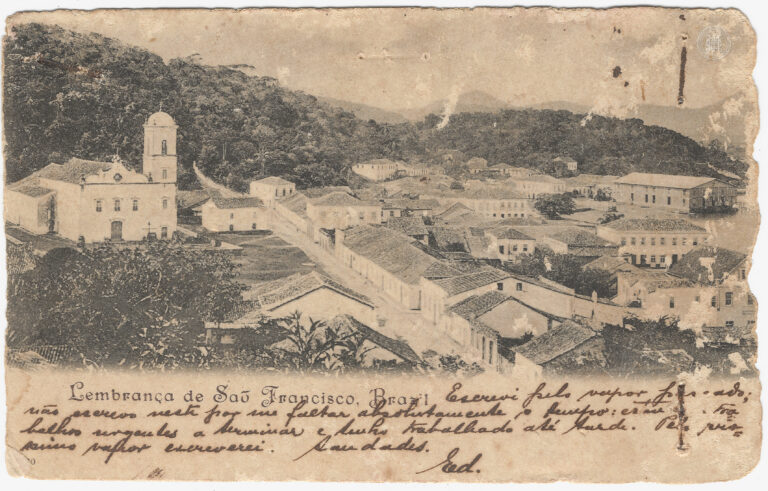 Lembrança de Saõ Francisco, Brazil
Escrevi pelo vapor passado;
não escrevo neste por me faltar absolutamente o tempo: tra
balhos urgentes a terminar e tenho trabalhado até tarde. Pelo pro
ximo vapor escreverei. Saudades.
Ed.